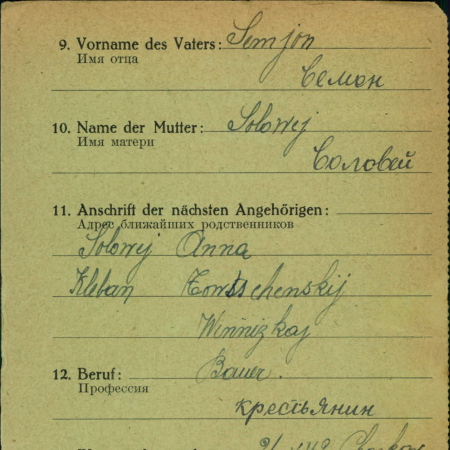 9. Vorname des Vaters: Semjon
Имя отца
Семон
10. Name der Mutter: Solowej
Имя матери
Соловей
11. Anschrift der nächsten Angehörigen:
Адрес ближайших родственников
Solowej Anna
Kleban Towstschenskij
Winnizkaj
12. Beruf: Bauer.
Профессия
крестьянин